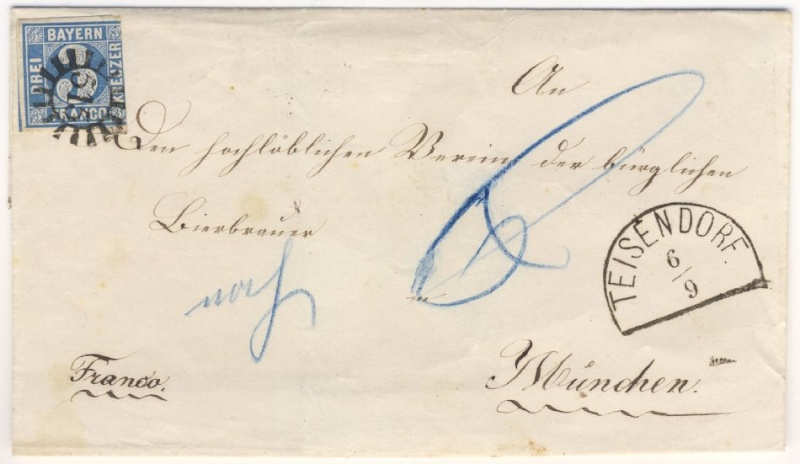 BAYERN
DREI
KREUZER
FRANCO
3
An
Den hochlöblichen Verein der bürglichen
Bierbrauer
in
München.
Franco.
TEISENDORF.
6/9